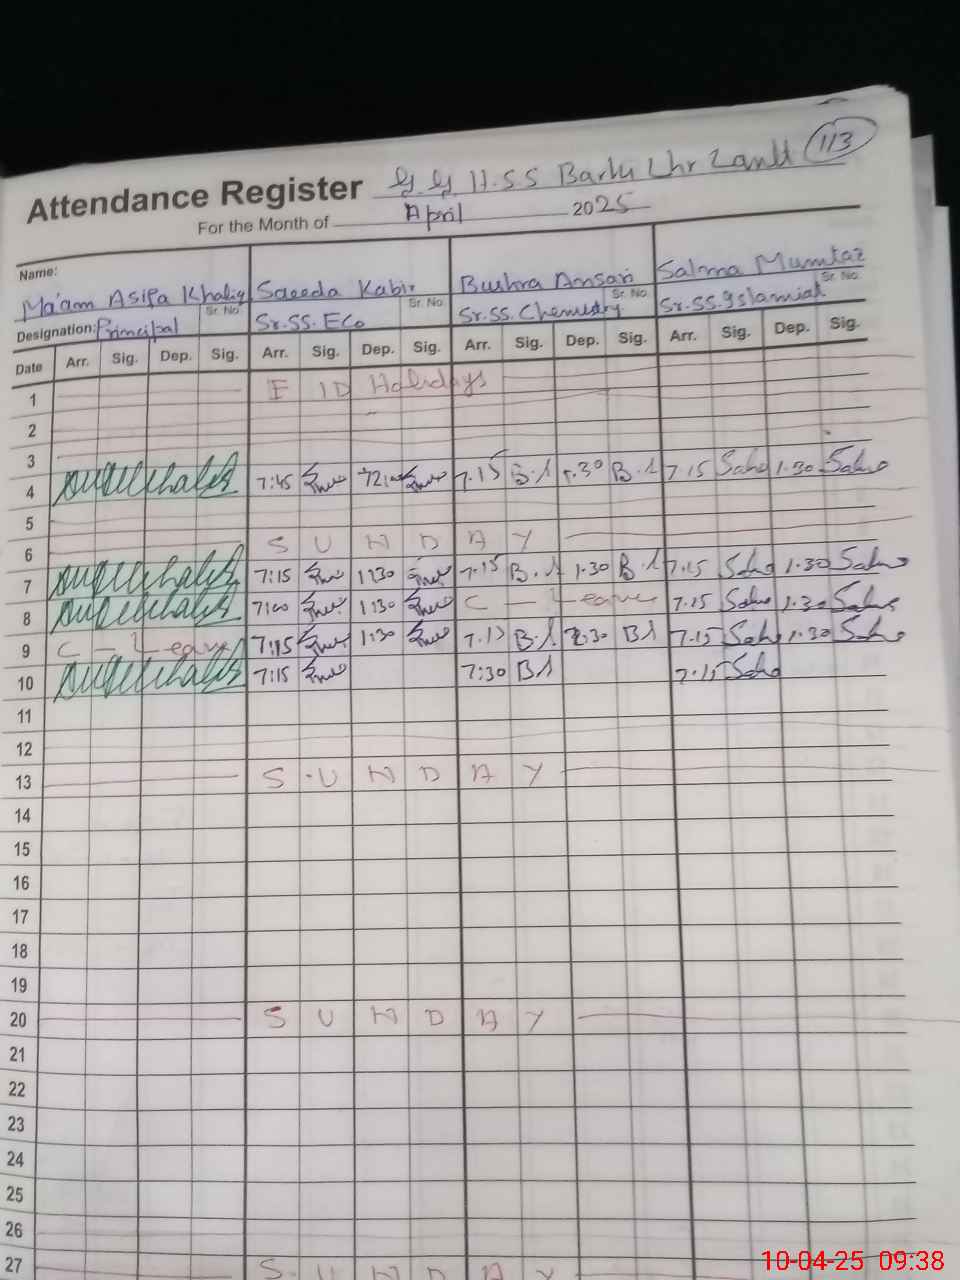 Attendance Register G.G H.S.S Barki Lhr Cantt 113
For the Month of April 2025
Name: Ma'am Asifa Khaliq Saeeda Kabir Bushra Ansari Salma Mumtaz
Designation: Principal Sr. No Sr.SS. Eco Sr. No Sr.SS. Chemistry Sr. No Sr.SS. Islamiat Sr. No
Date Arr. Sig. Dep. Sig. Arr. Sig. Dep. Sig. Arr. Sig. Dep. Sig. Arr. Sig. Dep. Sig.
1 EID Holidays
2
3
4 7:45 7.15 B.A 1.30 B.A 7.15 1.30
5
6 SUNDAY
7 7:15 1:30 7.15 B.A 1.30 B.A 7.15 1.30
8 7:00 1:30 C - Leave 7.15 1.30
9 C - Leave 7:15 1:30 7.15 B.A BA 7.15 1.30
10 7:15 7:30 BA 7.15
11
12
13 SUNDAY
14
15
16
17
18
19
20 SUNDAY
21
22
23
24
25
26
27 SUNDAY
10-04-25 09:38